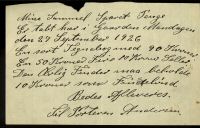 Mine Sammel Sparet Penge
Er tabt her i Gaarden Mandagen
den 27 September 1926
En sort Tegnebog med 90 Kroner
En 50 Krone Fire 10 Krone Sedler
Den Ærlig Finder maa beholde
10 Kroner som Findeløn
Bedes Afleveres
Til Portneren Andersen